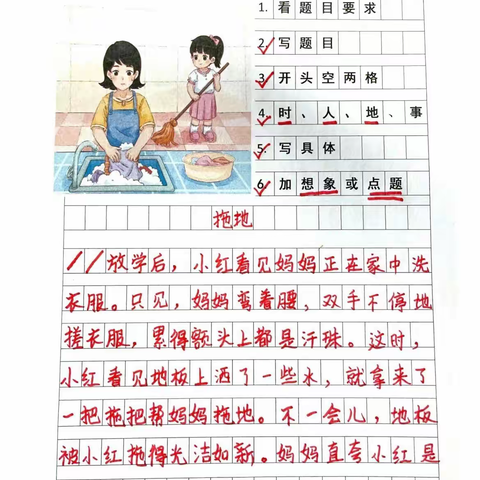 1. 看题目要求
2. 写题目
3. 开头空两格
4. 时、人、地、事
5. 写具体
6. 加想象或点题
拖地
放学后，小红看见妈妈正在家中洗
衣服。只见，妈妈弯着腰，双手不停地
搓衣服，累得额头上都是汗珠。这时，
小红看见地板上洒了一些水，就拿来了
一把拖把帮妈妈拖地。不一会儿，地板
被小红拖得光洁如新。妈妈直夸小红是